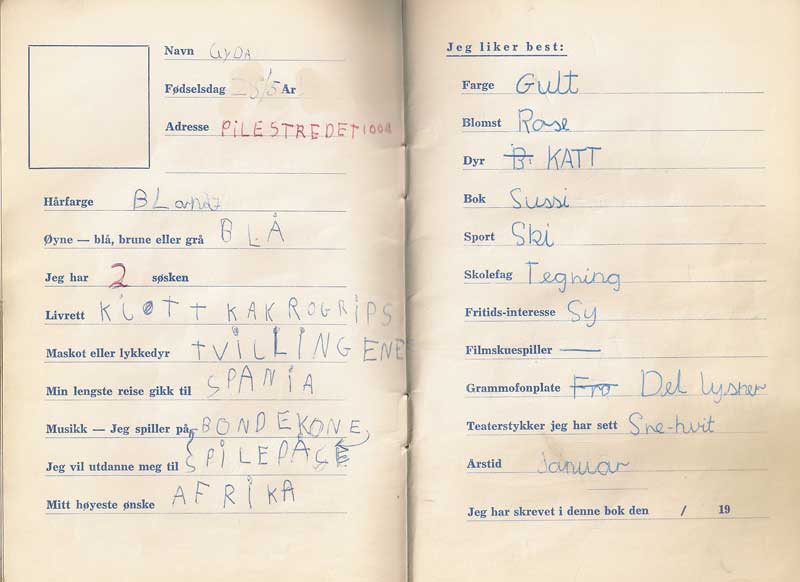 Navn GYDA
Fødselsdag 25/5 År
Adresse PILESTREDET 100A
Hårfarge BLondt
Øyne — blå, brune eller grå BLÅ
Jeg har 2 søsken
Livrett KJØTT KAKROGRIPS
Maskot eller lykkedyr TVILLINGENE
Min lengste reise gikk til SPANIA
Musikk — Jeg spiller på BONDEKONE
Jeg vil utdanne meg til SPILEPÅSE
Mitt høyeste ønske AFRIKA
Jeg liker best:
Farge Gult
Blomst Rose
Dyr B. KATT
Bok Sussi
Sport Ski
Skolefag Tegning
Fritids-interesse Sy
Filmskuespiller —
Grammofonplate Fro Del lysner
Teaterstykker jeg har sett Sne-hvit
Årstid Januar
Jeg har skrevet i denne bok den / 19